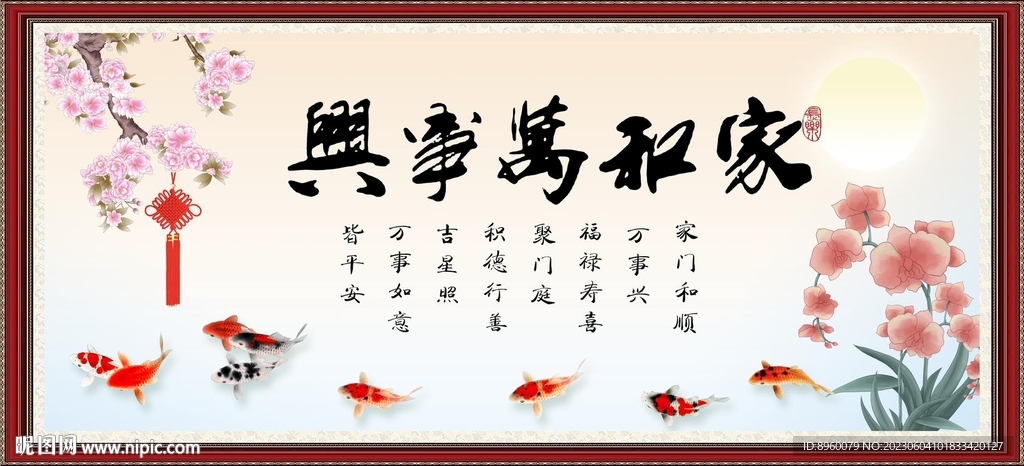 家和萬事興
長樂
家门和顺
万事兴
福禄寿喜
聚门庭
积德行善
吉星照
万事如意
皆平安
昵图网 www.nipic.com
ID:8960079 NO:20230604101833420127